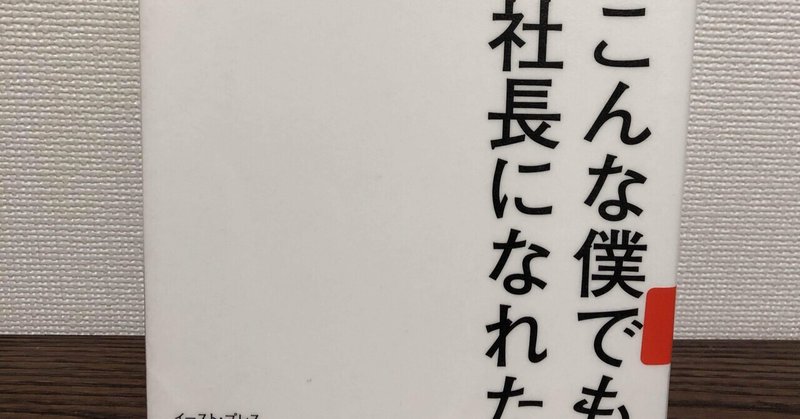 こんな僕でも
社長になれた
イースト・プレス